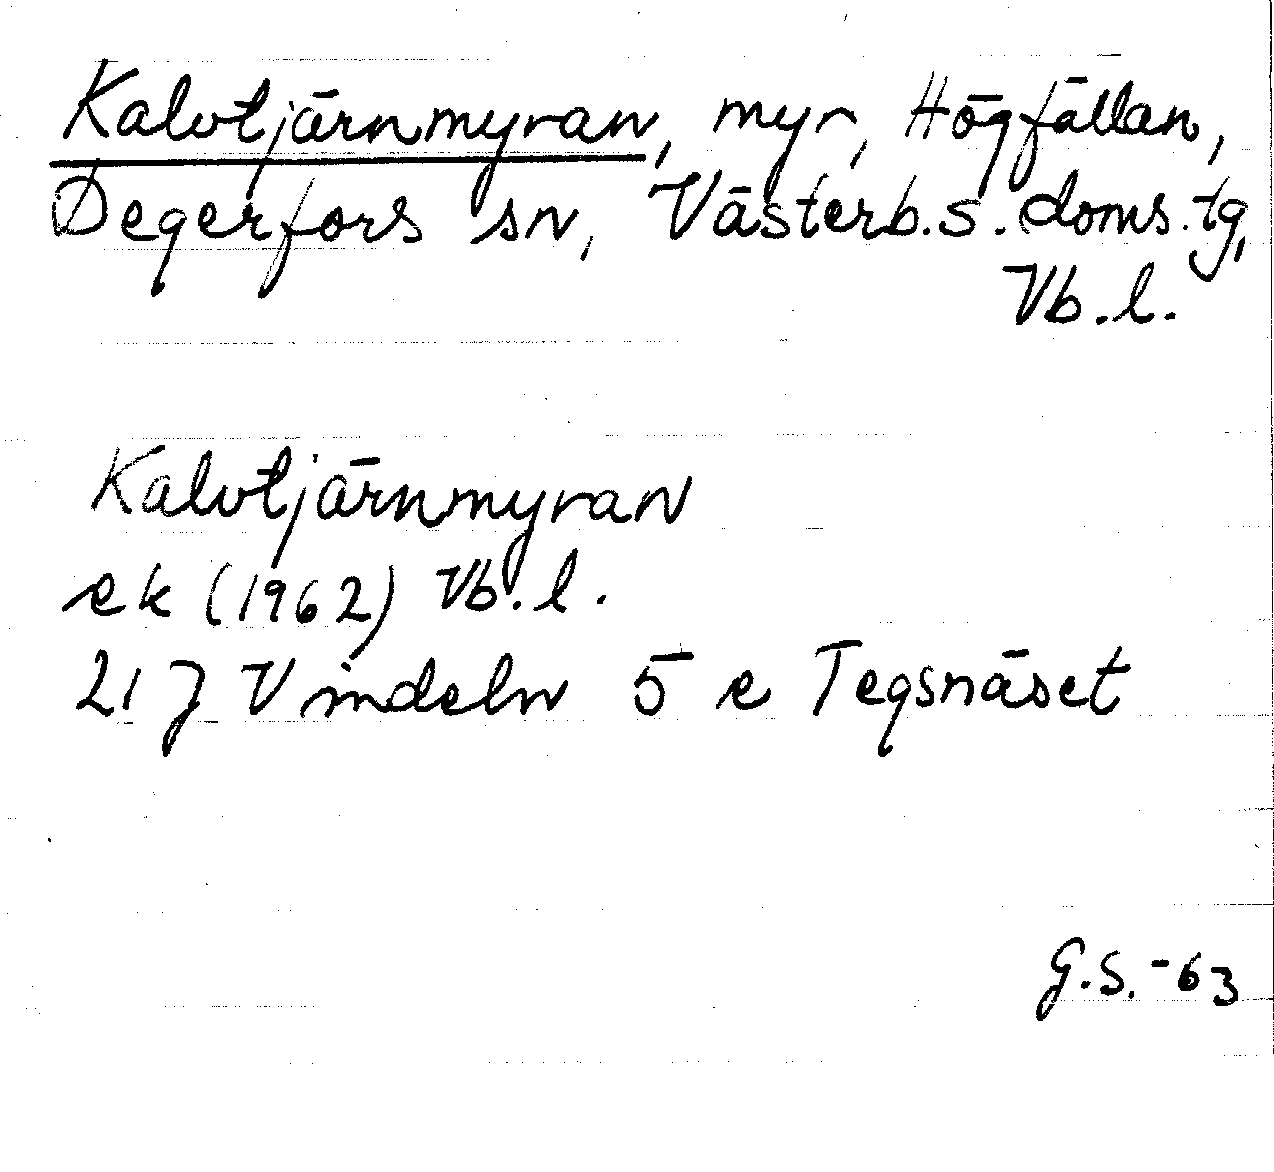 Kalvtjärnmyran, myr, Högfällan,
Degerfors sn, Västerb.s. doms.tg,
Vb.l.
Kalvtjärnmyran
ek (1962) Vb.l.
21 J Vindeln 5 e Tegsnäset
G.S.-63